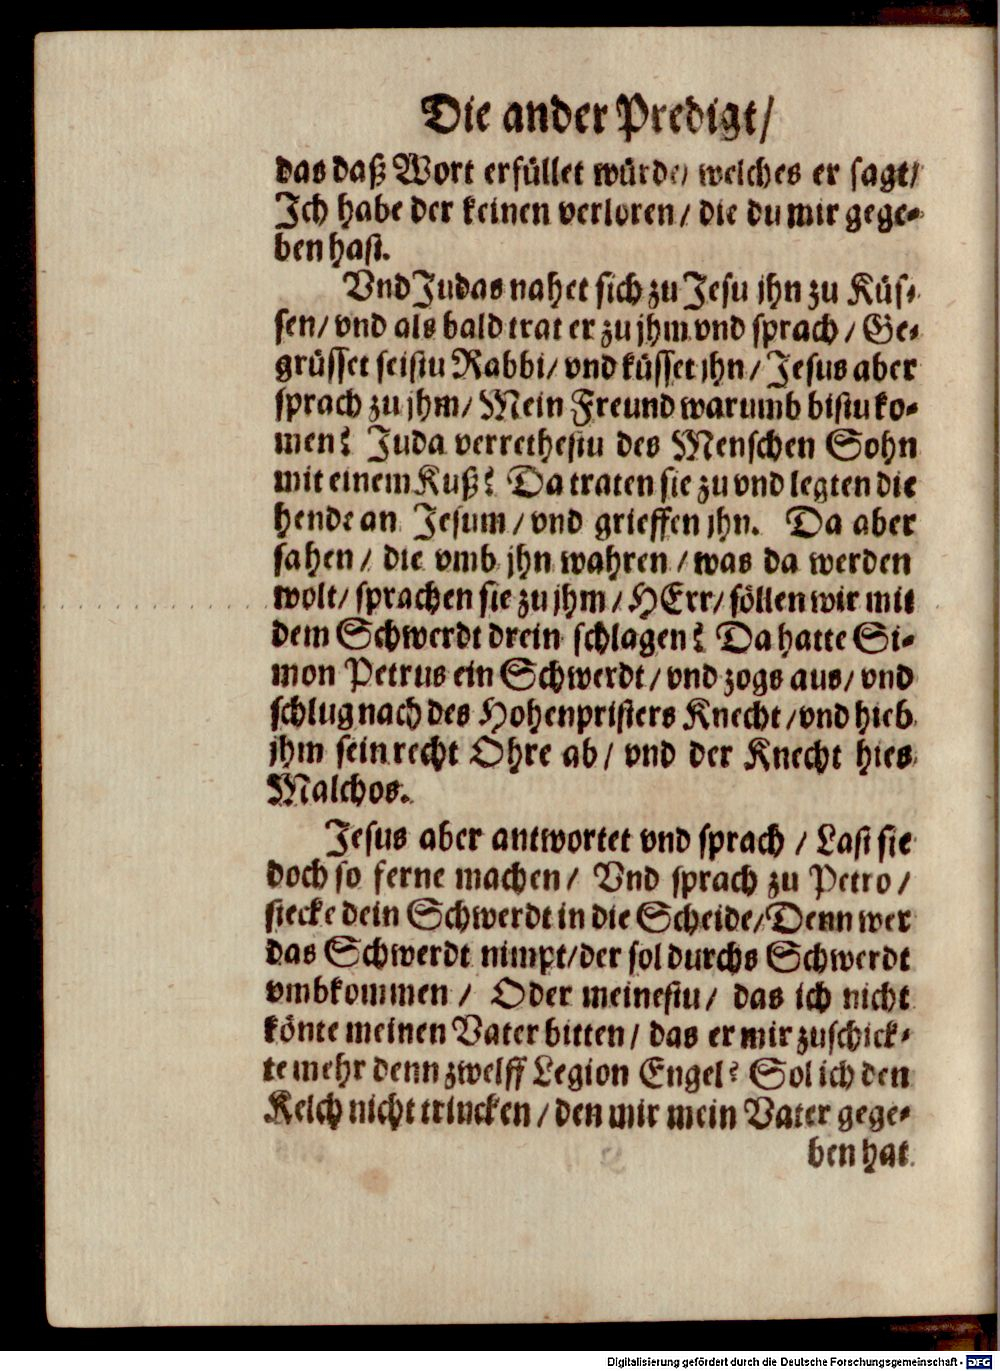 Die ander Predigt/
das daß Wort erfüllet würde/ welches er sagt/
Ich habe der keinen verloren/ die du mir gege-
ben hast.
Vnd Judas nahet sich zu Jesu jhn zu Küs-
sen/ vnd als bald trat er zu jhm vnd sprach/ Ge-
grüsset seistu Rabbi/ vnd küsset jhn/ Jesus aber
sprach zu jhm/ Mein Freund warumb bistu ko-
men? Juda verrethestu des Menschen Sohn
mit einem Kuß? Da traten sie zu vnd legten die
hende an Jesum/ vnd grieffen jhn. Da aber
sahen/ die vmb jhn wahren/ was da werden
wolt/ sprachen sie zu jhm/ HErr/ söllen wir mit
dem Schwerdt drein schlagen? Da hatte Si-
mon Petrus ein Schwerdt/ vnd zogs aus/ vnd
schlug nach des Hohenpristers Knecht/ vnd hieb
jhm sein recht Ohre ab/ vnd der Knecht hies
Malchos.
Jesus aber antwortet vnd sprach/ Last sie
doch so ferne machen/ Vnd sprach zu Petro/
stecke dein Schwerdt in die Scheide/ Denn wer
das Schwerdt nimpt/ der sol durchs Schwerdt
vmbkommen/ Oder meinestu/ das ich nicht
könte meinen Vater bitten/ das er mir zuschick-
te mehr denn zwelff Legion Engel? Sol ich den
Kelch nicht trincken/ den mir mein Vater gege-
ben hat
Digitalisierung gefördert durch die Deutsche Forschungsgemeinschaft - DFG